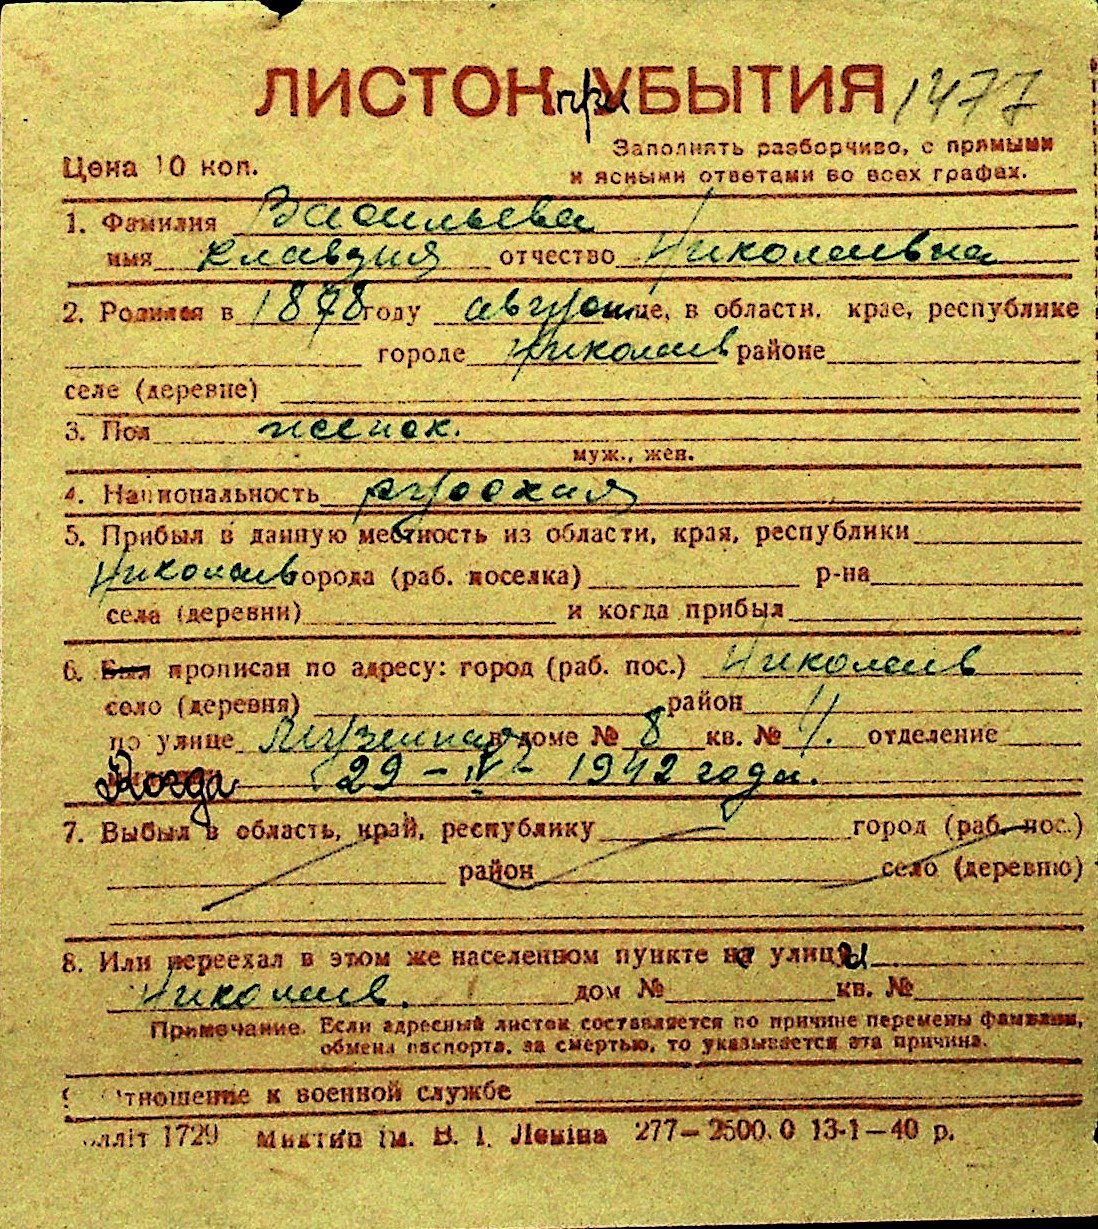 ЛИСТОК при УБЫТИЯ 1477
Цена 10 коп.
Заполнять разборчиво, с прямыми
и ясными ответами во всех графах.
1. Фамилия Васильева
имя Клавдия отчество Николаевна
2. Родился в 1878 году август це, в области, крае, республике
городе Николаев районе
селе (деревне)
3. Пол женск.
муж., жен.
4. Национальность русская
5. Прибыл в данную местность из области, края, республики
Николаев города (раб. поселка) р-на
села (деревни) и когда прибыл
6. Был прописан по адресу: город (раб. пос.) Николаев
село (деревня) район
по улице в доме № 8 кв. № 4. отделение
Когда 29-IV- 1942 года.
7. Выбыл в область, край, республику город (раб. пос.)
район село (деревню)
8. Или переехал в этом же населенном пункте на улицу
Николаев. дом № кв. №
Примечание. Если адресный листок составляется по причине перемены фамилии,
обмена паспорта, за смертью, то указывается эта причина.
9. Отношение к военной службе
лліт 1729 Миктип ім. В. І. Леніна 277—2500.0 13-1—40 р.